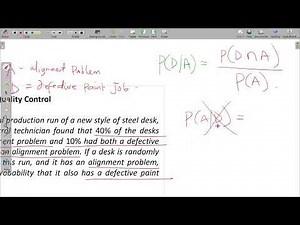 P(D|A) = P(D∩A)
P(A).
A - alignment Problem
D = defective Paint Job.
Quality Control
production run of a new style of steel desk,
control technician found that 40% of the desks
ment problem and 10% had both a defective
an alignment problem. If a desk is randomly
this run, and it has an alignment problem,
robability that it also has a defective paint
P(A D) =